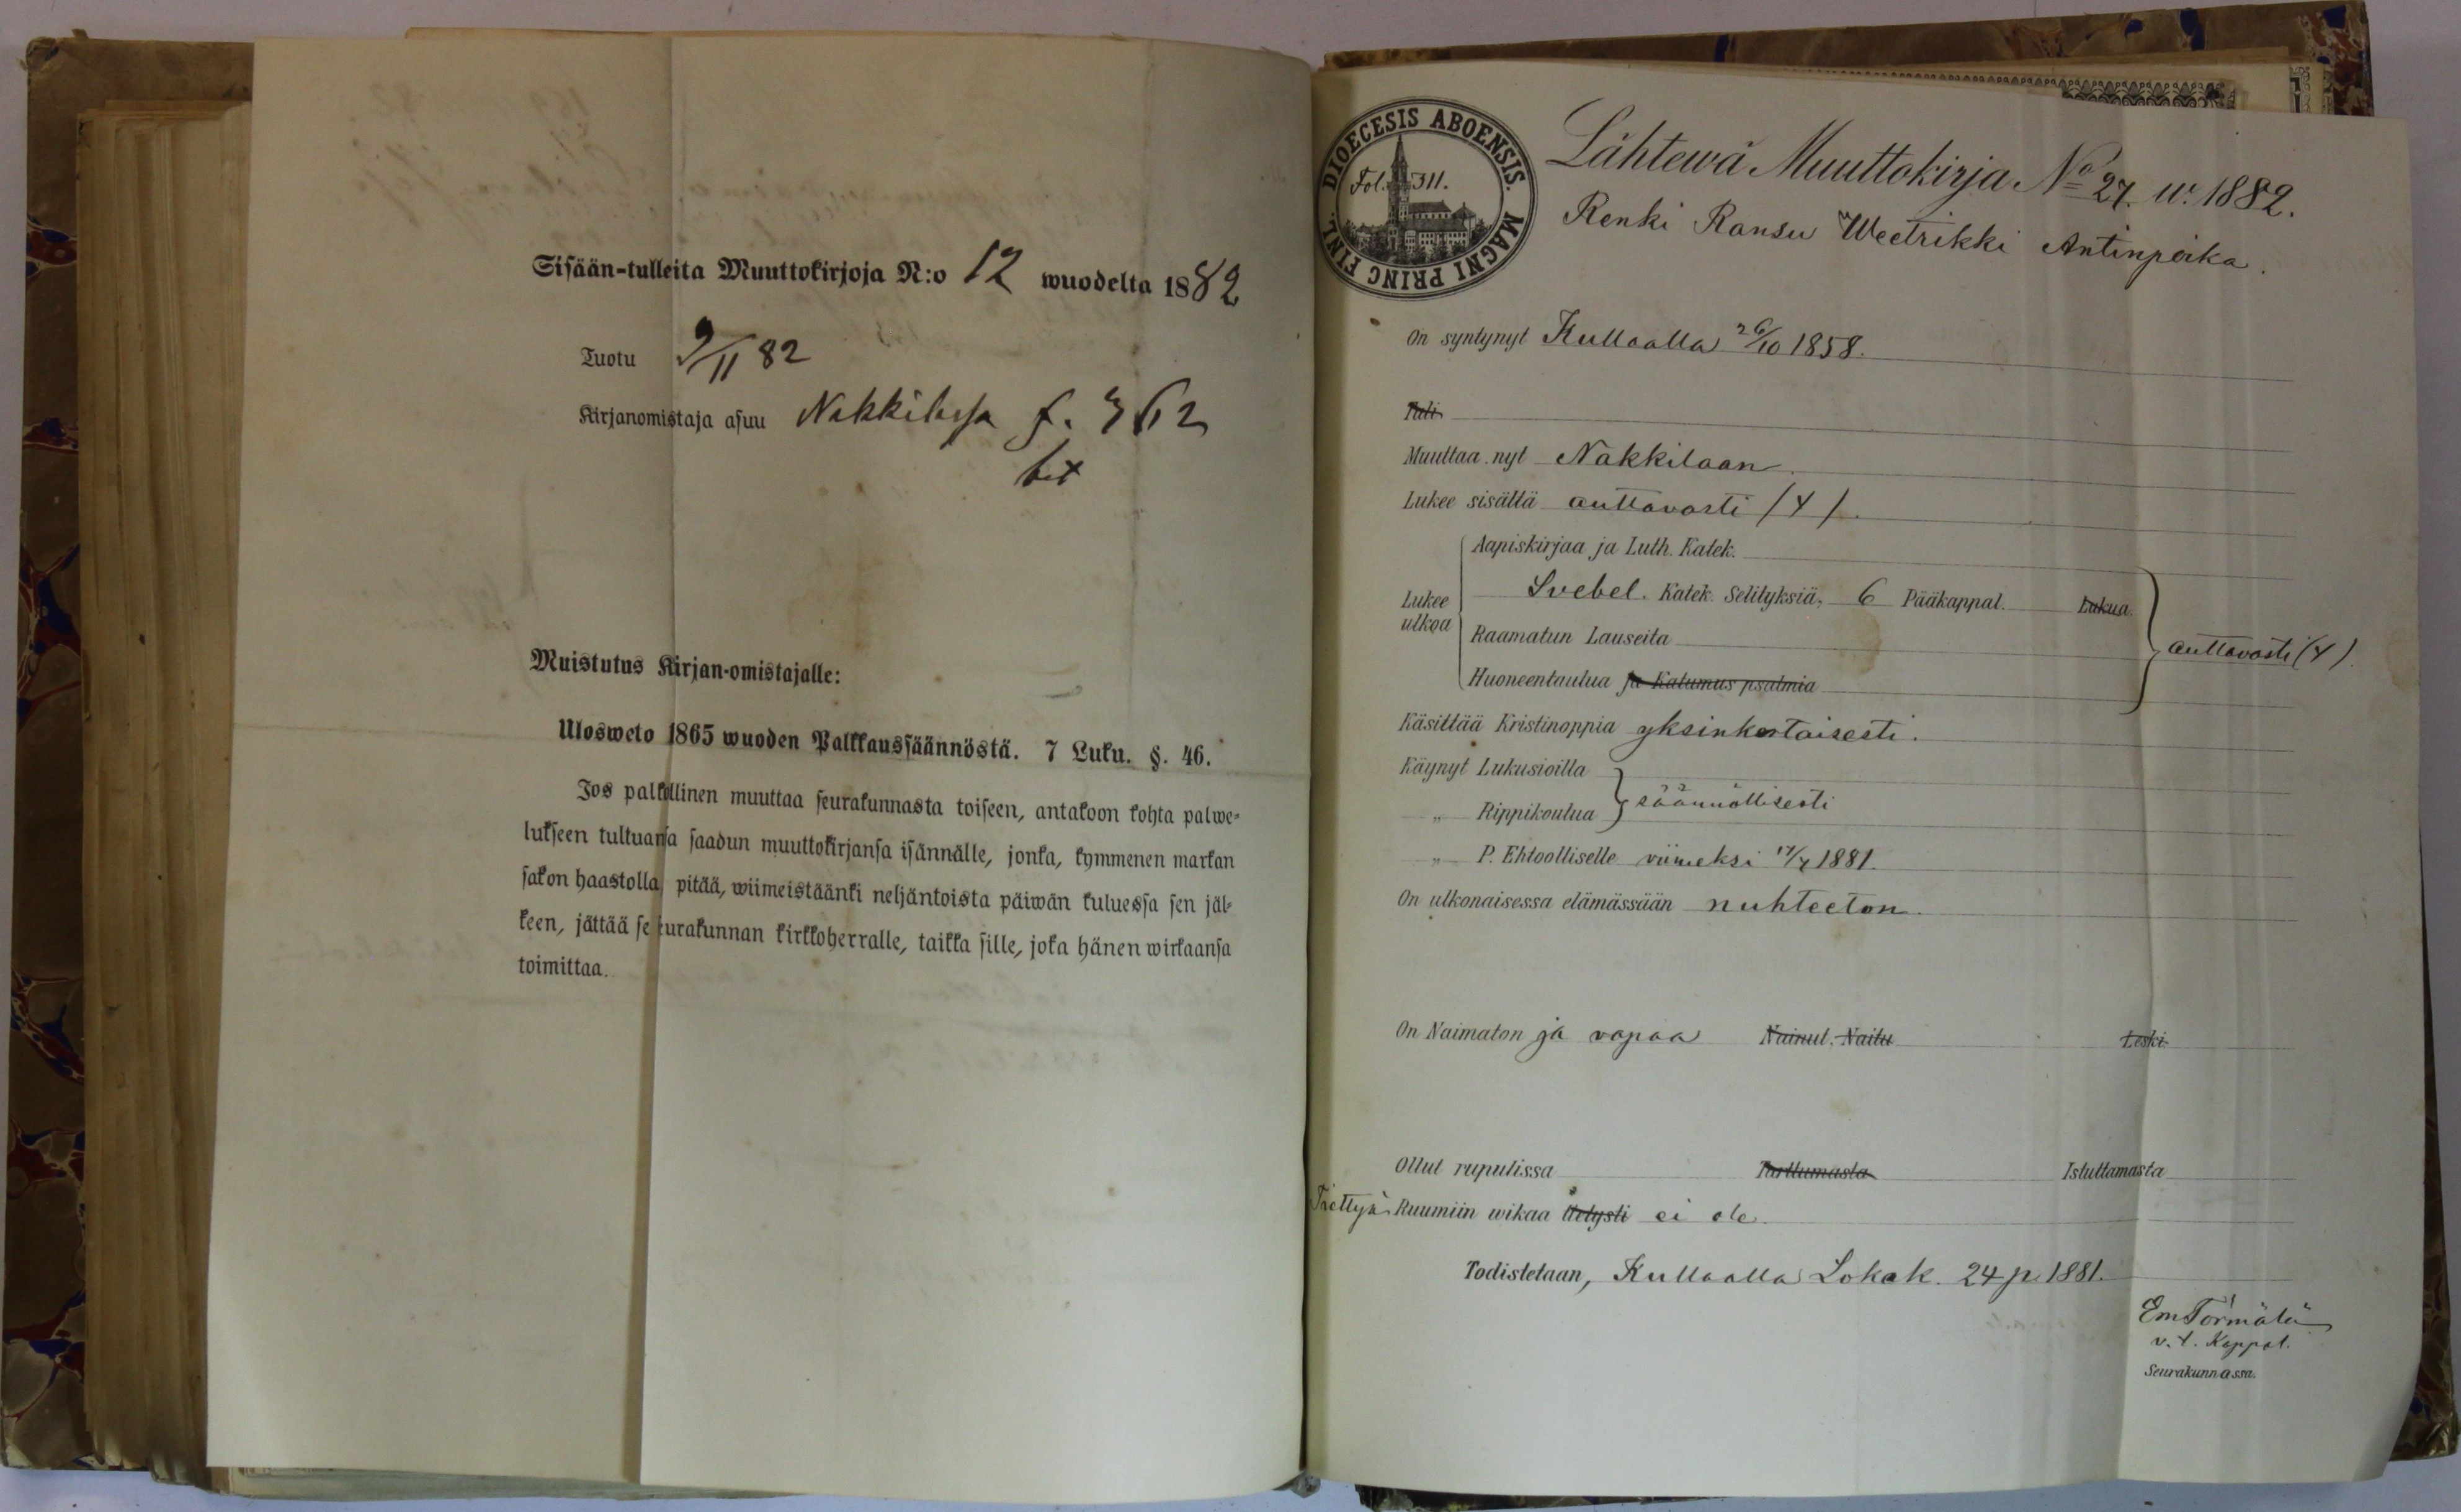 Sisään-tulleita Muuttokirjoja N:o 12 wuodelta 1882
Tuotu 9/II 82
Kirjanomistaja asuu Nakkilassa f. 362
Muistutus Kirjan-omistajalle:
Ulosweto 1865 wuoden Palkkaussäännöstä. 7 Luku. §. 46.
Jos palkollinen muuttaa seurakunnasta toiseen, antakoon kohta palwe-
lukseen tultuansa saadun muuttokirjansa isännälle, jonka, kymmenen markan
sakon haastolla, pitää, wiimeistäänki neljäntoista päiwän kuluessa sen jäl-
keen, jättää se seurakunnan kirkkoherralle, taikka sille, joka hänen wirkaansa
toimittaa.
DIOECESIS ABOENSIS. MAGNI PRINC FINL.
Fol. 311.
Lähtewä Muuttokirja No 27 w. 1882.
Renki Ransu Weetrikki Antinpoika.
On syntynyt Kullaalla 26/10 1858.
Tuli
Muuttaa nyt Nakkilaan.
Lukee sisältä auttavasti (4).
Lukee ulkoa
Aapiskirjaa ja Luth. Katek.
Svebel. Katek. Selityksiä, 6 Pääkappal. Lukua.
Raamatun Lauseita
Huoneentaulua ja Katumus psalmia
auttavasti (4).
Käsittää Kristinoppia yksinkertaisesti.
Käynyt Lukusioilla
„ Rippikoulua säännöllisesti
„ P. Ehtoolliselle viimeksi 17/4 1881.
On ulkonaisessa elämässään nuhteeton.
On Naimaton ja vapaa Nainut. Naitu Leski
Ollut rupulissa Tarttumasta Istuttamasta
Tiettyä Ruumiin wikaa tietysti ei ole.
Todistetaan, Kullaalla Lokak. 24 p. 1881.
Em Törmälä
v. t. Kappal.
Seurakunnassa.